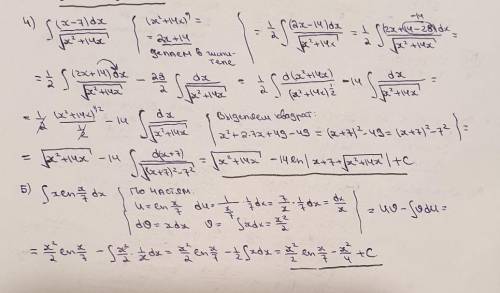 4) ∫ (x-7)dx / √(x²+14x) { (x²+14x)' = 2x+14 делаем в числителе } = 1/2 ∫ (2x-14)dx / √(x²+14x) = 1/2 ∫ (2x+14-28)dx / √(x²+14x) =
-14
= 1/2 ∫ (2x+14)dx / √(x²+14x) - 28/2 ∫ dx / √(x²+14x) = 1/2 ∫ d(x²+14x) / (x²+14x)^(1/2) - 14 ∫ dx / √(x²+14x) =
= 1/2 (x²+14x)^(1/2) / (1/2) - 14 ∫ dx / √(x²+14x) { Выделяем квадрат: x²+2·7x+49-49 = (x+7)²-49 = (x+7)²-7² } =
= √(x²+14x) - 14 ∫ d(x+7) / √((x+7)²-7²) = √(x²+14x) - 14 ln |x+7+√(x²+14x)| + C
5) ∫ x ln x/7 dx { По частям: u = ln x/7 du = 1/(x/7) · 1/7 dx = 7/x · 1/7 dx = dx/x dϑ = xdx ϑ = ∫xdx = x²/2 } = uϑ - ∫ϑdu =
= x²/2 ln x/7 - ∫ x²/2 · 1/x dx = x²/2 ln x/7 - 1/2 ∫ xdx = x²/2 ln x/7 - x²/4 + C